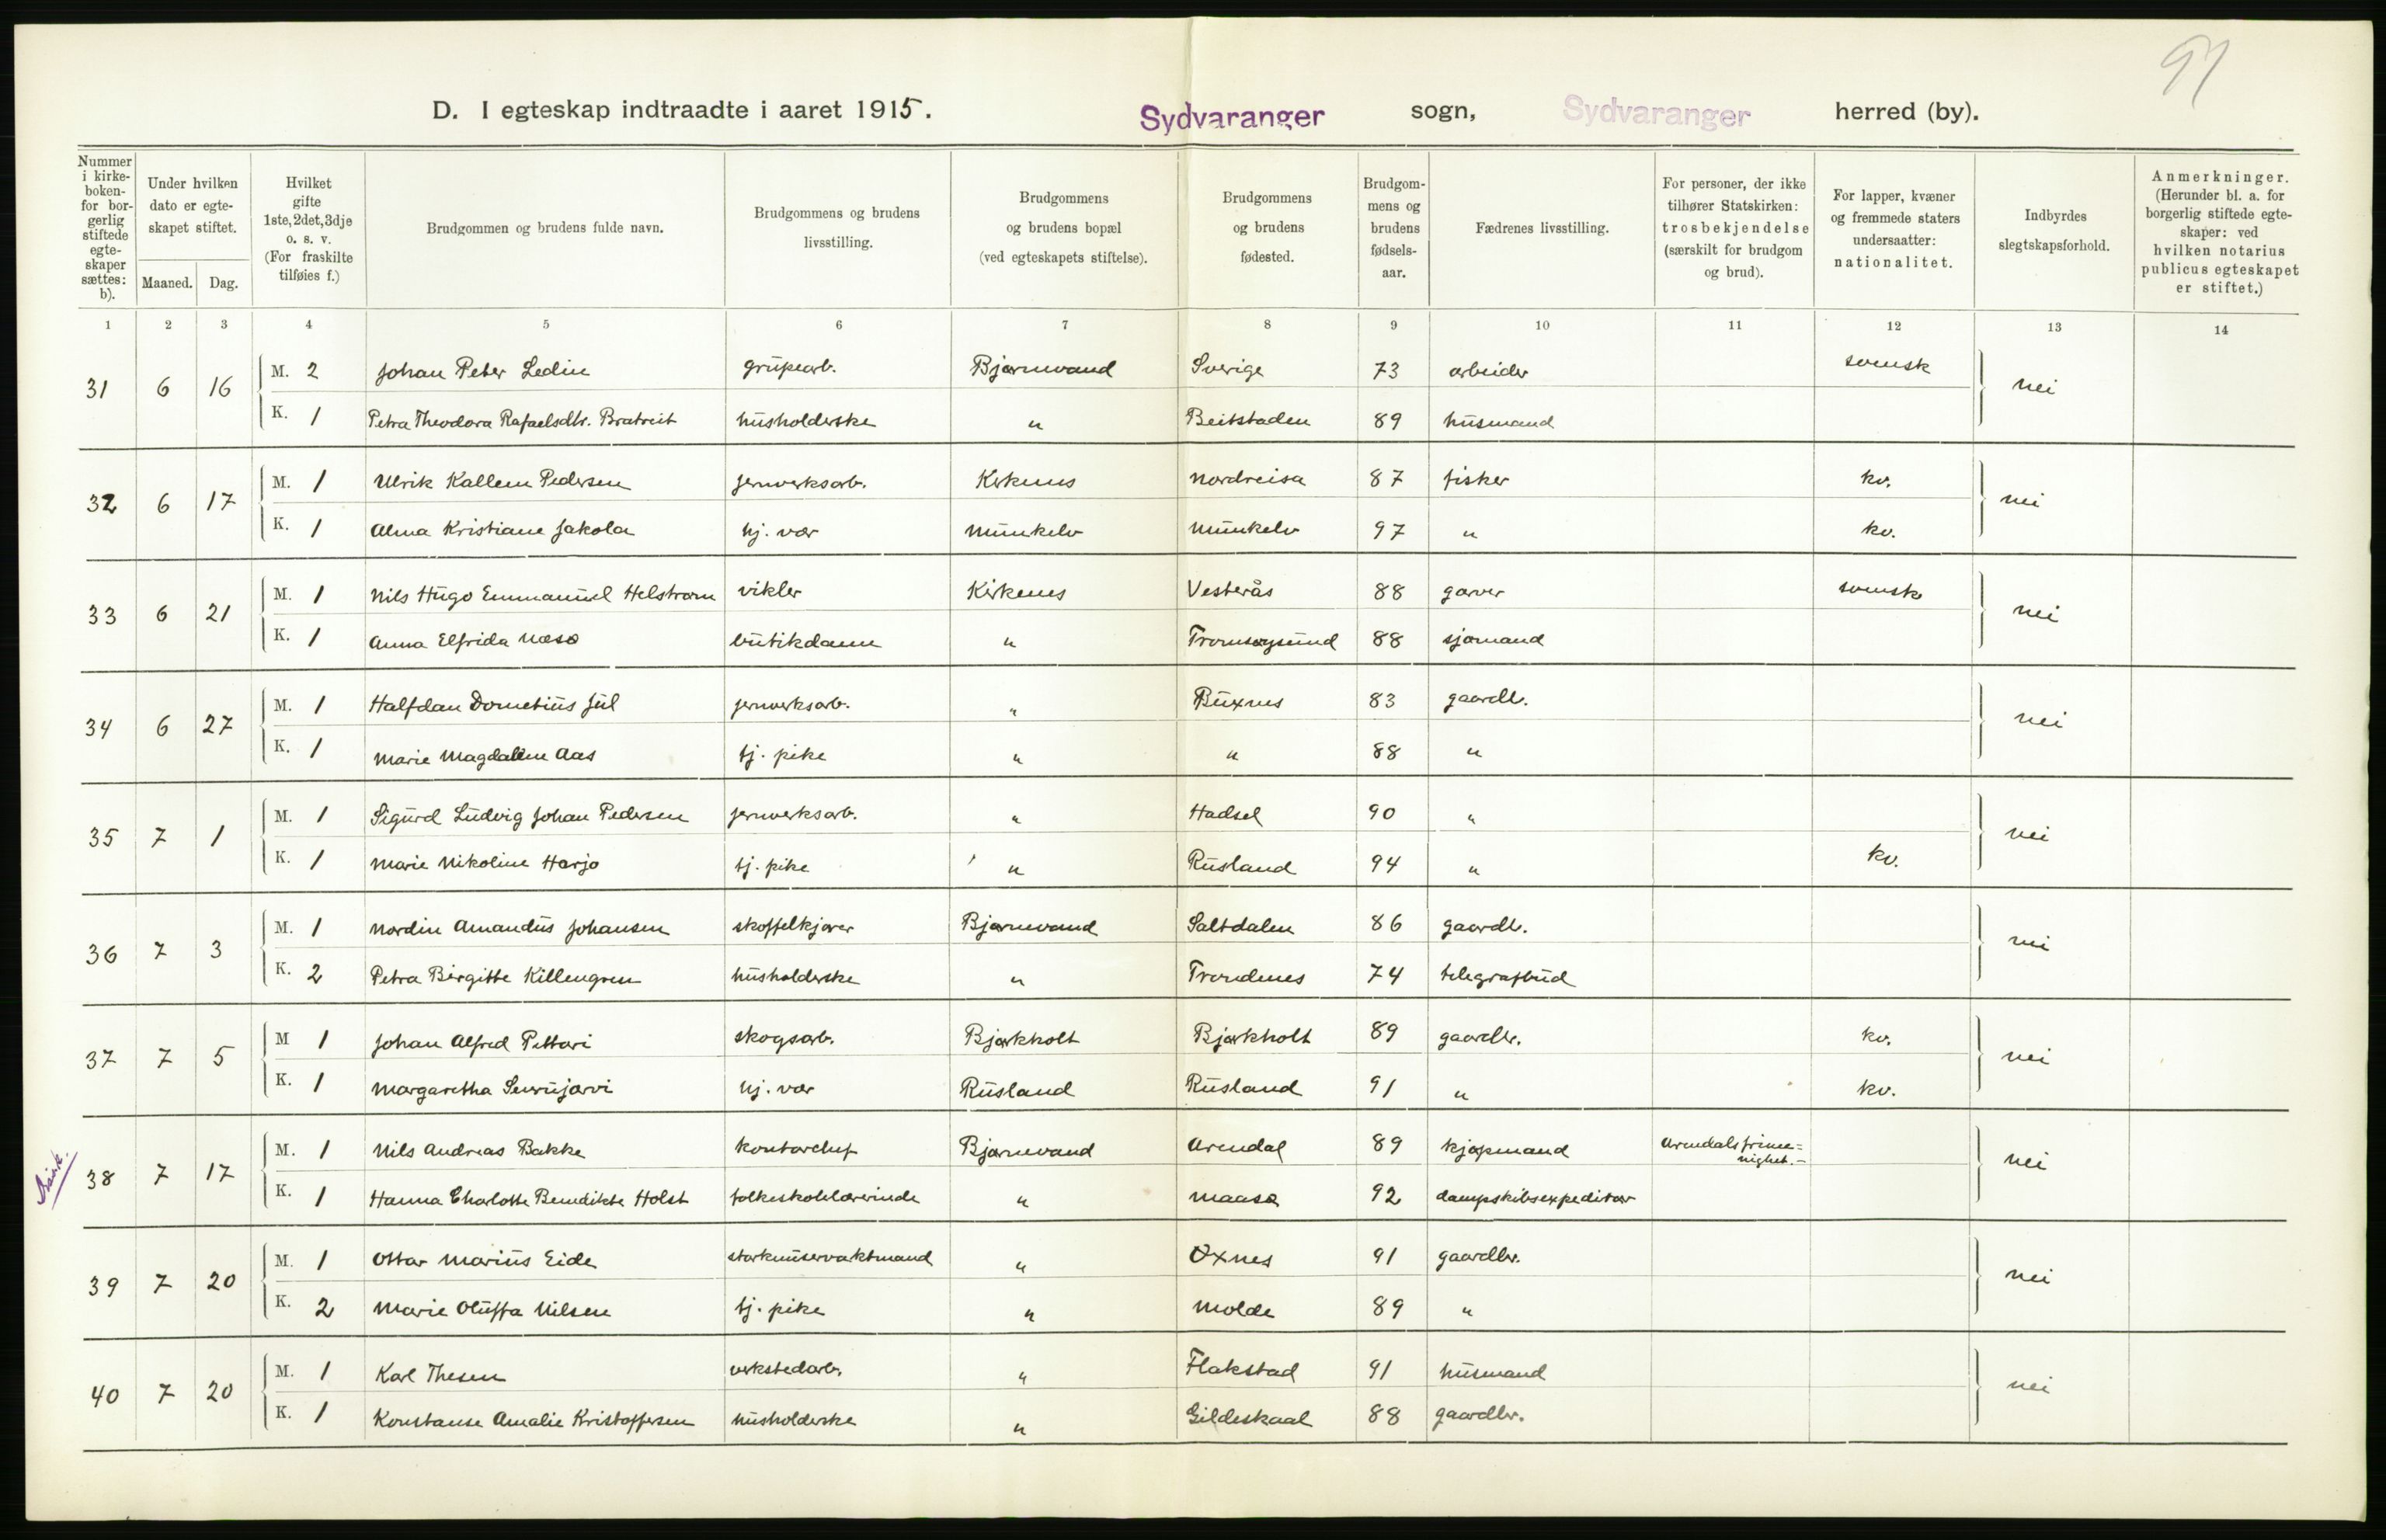 97
D. I egteskap indtraadte i aaret 1915. Sydvaranger sogn, Sydvaranger herred (by).
Nummer i kirkeboken- for borgerlig stiftede egteskaper sættes: b).
Under hvilken dato er egteskapet stiftet.
Maaned. Dag.
Hvilket gifte 1ste, 2det, 3dje o. s. v. (For fraskilte tilføies f.)
Brudgommen og brudens fulde navn.
Brudgommens og brudens livsstilling.
Brudgommens og brudens bopæl (ved egteskapets stiftelse).
Brudgommens og brudens fødested.
Brudgommens og brudens fødselsaar.
Fædrenes livsstilling.
For personer, der ikke tilhører Statskirken: trosbekjendelse (særskilt for brudgom og brud).
For lapper, kvæner og fremmede staters undersaatter: nationalitet.
Indbyrdes slegtskapsforhold.
Anmerkninger. (Herunder bl. a. for borgerlig stiftede egteskaper: ved hvilken notarius publicus egteskapet er stiftet.)
1 2 3 4 5 6 7 8 9 10 11 12 13 14
31 6 16 M. 2 Johan Peter Ledin grupearb. Bjørnevand Sverige 73 arbeider svensk nei
K. 1 Petra Theodora Rafaelsdtr. Bratreit husholderske " Beitstaden 89 husmand
32 6 17 M. 1 Ulrik Kallem Pedersen jernverksarb. Kirkenes Nordreisa 87 fisker kv. nei
K. 1 Alma Kristiane Jakola hj. vær Munkelv Munkelv 97 " kv.
33 6 21 M. 1 Nils Hugo Emmanuel Helstrøm vikler Kirkenes Vesterås 88 garver svensk nei
K. 1 Anna Elfrida Næsø butikdame " Tromsøysund 88 sjømand
34 6 27 M. 1 Halfdan Dometius Jul jernverksarb. " Buxnes 83 gaardb. nei
K. 1 Marie Magdalene Aas tj. pike " " 88 "
35 7 1 M. 1 Sigurd Ludvig Johan Pedersen jernverksarb. " Hadsel 90 " nei
K. 1 Marie Nikoline Harjo tj. pike " Rusland 94 " kv.
36 7 3 M. 1 Nordin Amandus Johansen skoffelkjører Bjørnevand Saltdalen 86 gaardb. nei
K. 2 Petra Birgitte Killengren husholderske " Trondenes 74 telegrafbud
37 7 5 M 1 Johan Alfred Pettari skogsarb. Bjørkholt Bjørkholt 89 gaardbr. kv. nei
K. 1 Margaretha Seurujärvi hj. vær Rusland Rusland 91 " kv.
38 7 17 M. 1 Nils Andreas Bakke kontorchef Bjørnevand Arendal 89 kjøpmand Arendals frime=
nighet.- nei
K. 1 Hanna Charlotte Benedikte Holst folkeskolelærerinde " Maasø 92 dampskibsexpeditør
39 7 20 M. 1 Ottar Marius Eide storknuservaktmand " Øxnes 91 gaardbr. nei
K. 2 Marie Oluffa Nilsen tj. pike " Molde 89 "
40 7 20 M. 1 Karl Thesen verkstedarb. " Flakstad 91 husmand nei
K. 1 Konstanse Amalie Kristoffersen husholderske " Gildeskaal 88 gaardbr.